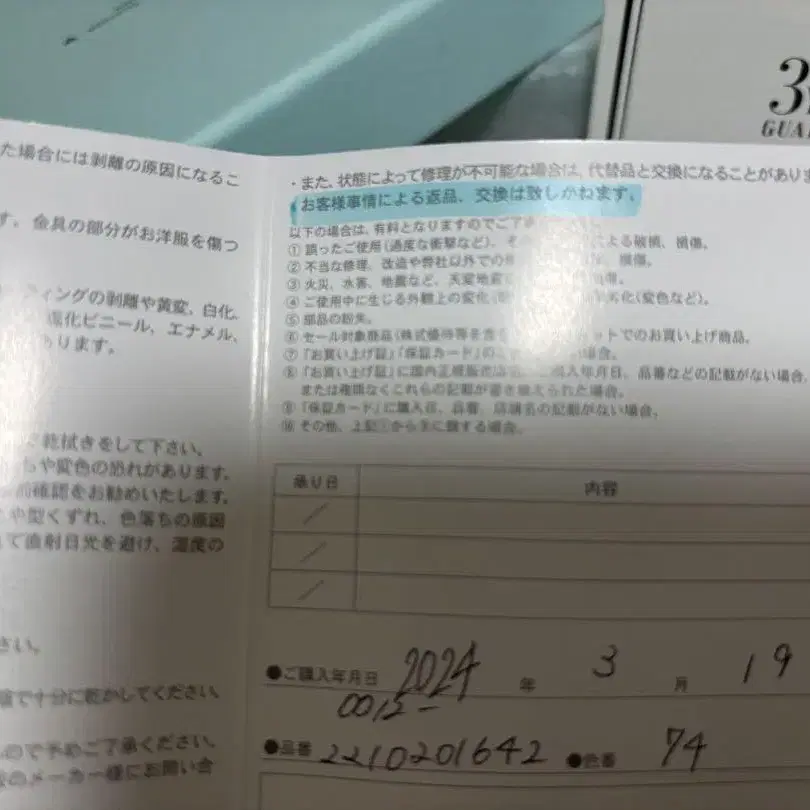 3
GUA
た場合には剥離の原因になるこ
す。金具の部分がお洋服を傷つ
ティングの剥離や黄変、白化、
塩化ビニール、エナメル、
あります。
乾拭きをして下さい。
ちや変色の恐れがあります。
前確認をお勧めいたします。
や型くずれ、色落ちの原因
て直射日光を避け、湿度の
さい。
陰で十分に乾かしてください。
ので予めご了承ください。
のメーカー様にお問い合
・また、状態によって修理が不可能な場合は、代替品と交換になることがありま
お客様事情による返品、交換は致しかねます。
以下の場合は、有料となりますのでご了承
① 誤ったご使用（過度な衝撃など）、その による破損、損傷。
② 不当な修理、改造や弊社以外での 損傷。
③ 火災、水害、地震など、天変地異
④ ご使用中に生じる外観上の変化 劣化（変色など）。
⑤ 部品の紛失。
⑥ セール対象商品（株式優待等を含 ットでのお買い上げ商品。
⑦ 「お買い上げ証」「保証カード」のご 場合。
⑧ 「お買い上げ証」に国内正規販売店名 購入年月日、品番などの記載がない場合、
または権限なくこれらの記載が書き換えられた場合。
⑨ 「保証カード」に購入日、品番、店舗名の記載がない場合。
⑩ その他、上記①から⑨に類する場合。
承り日 内容
／
／
／
●ご購入年月日 2024 年 3 月 19
0012-
●品番 2210201642 ●色番 74